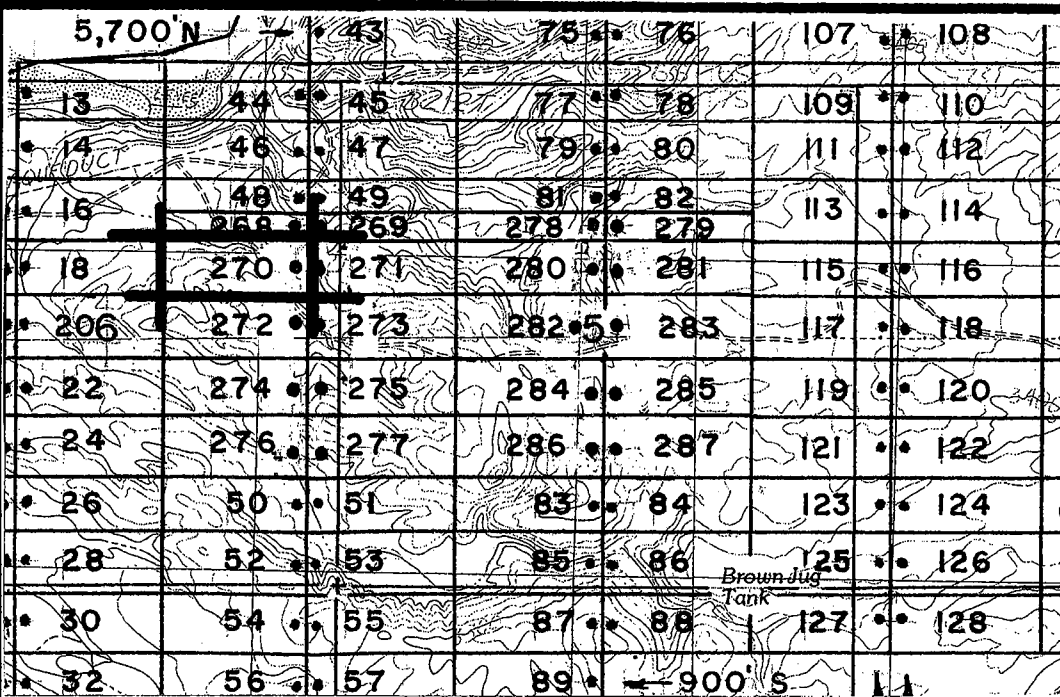 5,700'N 43 75 76 107 108
13 44 45 77 78 109 110
14 46 47 79 80 111 112
48 49 81 82
16 113 114
268 269 278 279
18 270 271 280 281 115 116
206 272 273 282 5 283 117 118
22 274 275 284 285 119 120
24 276 277 286 287 121 122
26 50 51 83 84 123 124
28 52 53 85 86 125 126
Brown Jug
Tank
30 54 55 87 88 127 128
32 56 57 89 900' S